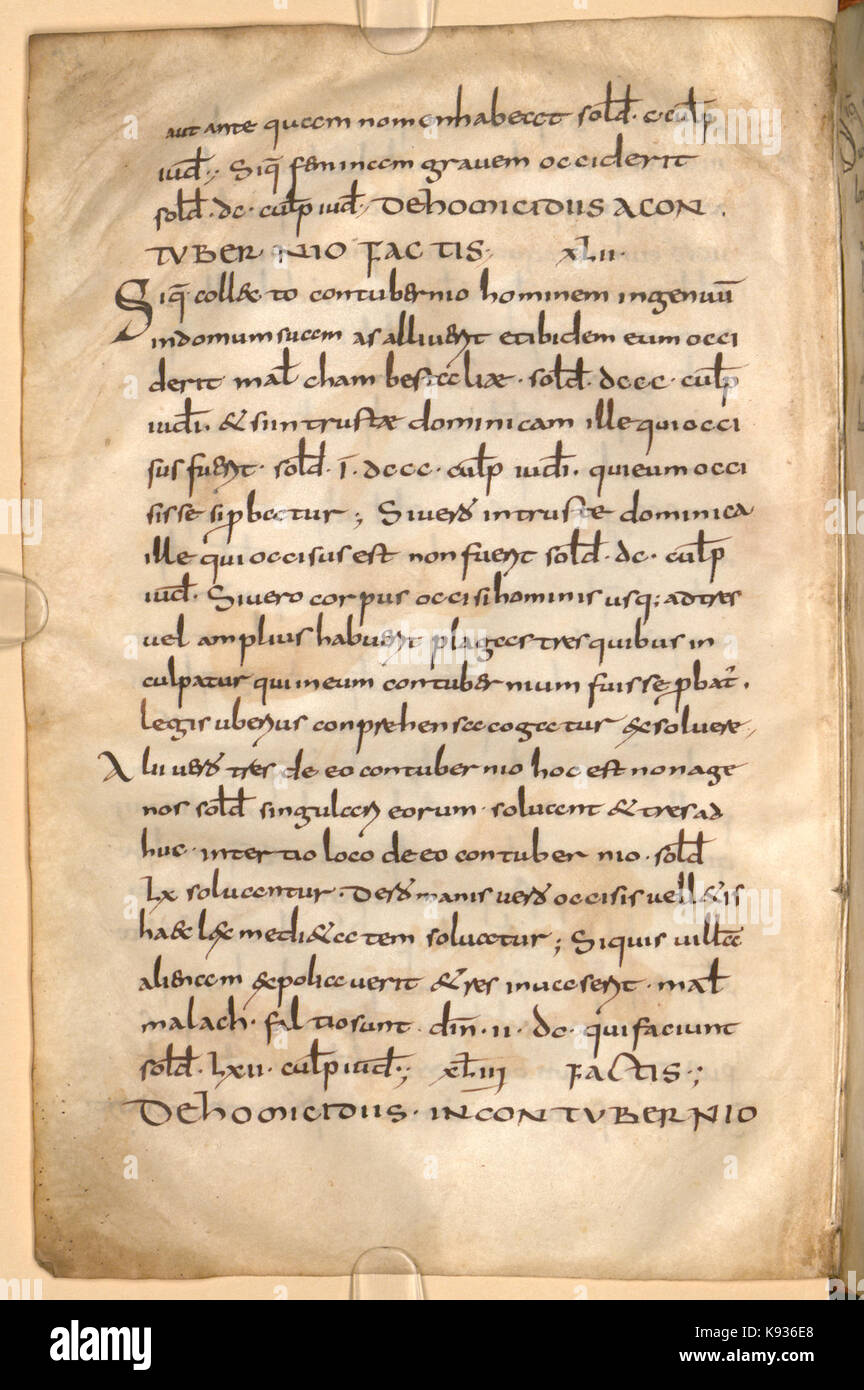 aut ante quam nomen habeat sold̅. c. culp̅
iud̅.,. Siq̅ feminam gravem occiderit
sold̅. dc. culp̅ iud̅., DE HOMICIDIIS A CON
TUBERNIO FACTIS. XLII.
Siq̅. collecto contubernio hominem ingenuū
in domum suam asallivert et ibidem eum occi
derit mal̅ cham bestaliae. sold̅. dccc. culp̅
iud̅i. & si in truste dominicam ille qui occi
sus fuert. sold̅. ī. dccc. culp̅ iud̅i. qui eum occi
sisse si p̅batur; Si vero in truste dominica
ille qui occisus est non fuert sold̅. dc. culp̅
iud̅. Si vero corpus occisi hominis usq; ad tres
vel amplius habuert plagas tres quibus in
culpatur qui in eum contubernium fuisse p̅bat̅.
legis uberius conprehensa cogatur exsolvere.,
Alii vero tres de eo contubernio hoc est nonage
nos sold̅ singulaer eorum. solvant & tres ad
huc. in tertio loco de eo contubernio. sold̅
lx solvantur. De ro manis vero occisis vel letis
haec lex medi&atem solvatur; Si quis villā
alienam expolicaverit & res invaserit. mal̅
malach. faltio sunt. din̅. ii. dc. qui faciunt
sold̅. lxii. culp̅ iud̅.; XLIII FACTIS.;
DE HOMICIDIIS. IN CONTUBERNIO
alamy
Image ID: K936E8
www.alamy.com